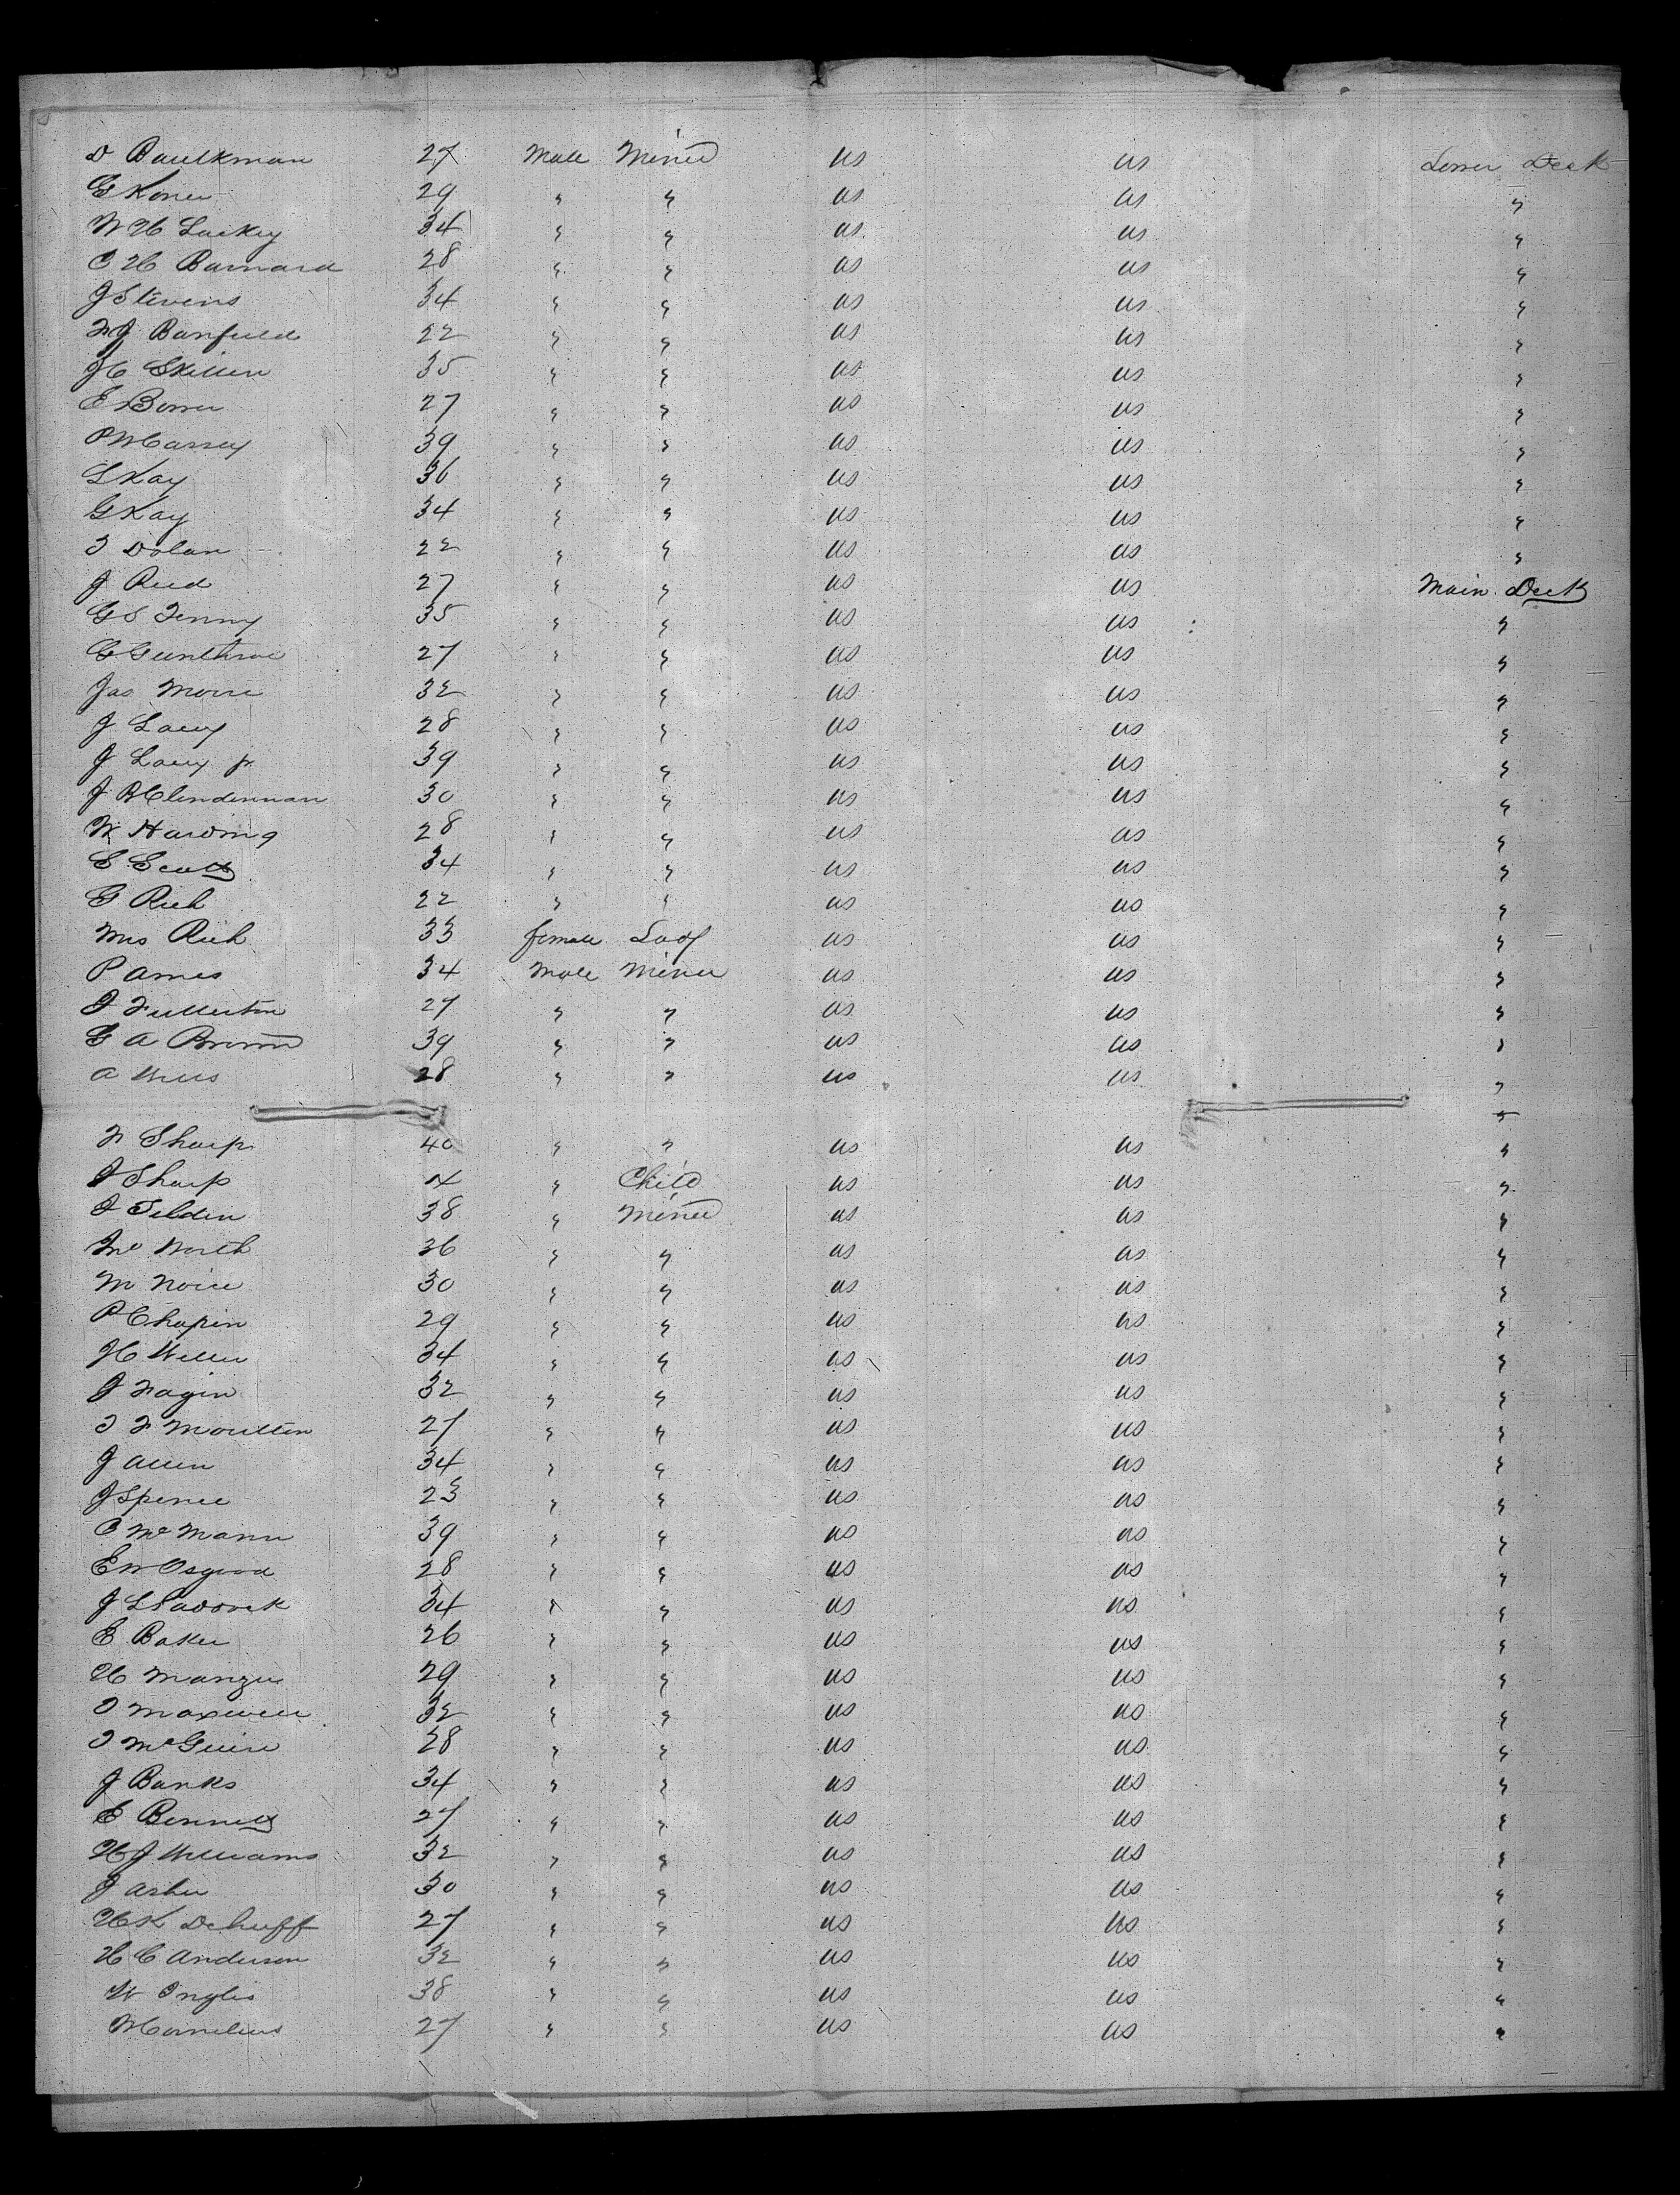 D Baulkman 27 Male Miner US US Lower Deck
G Koner 29 " " US US "
W H Luckey 34 " " US US "
C H Barnard 28 " " US US "
J Stevens 34 " " US US "
W J Banfield 22 " " US US "
H Skillen 35 " " US US "
E Borrer 27 " " US US "
P W Carsey 39 " " US US "
L Kay 36 " " US US "
G Kay 34 " " US US "
T Dolan 22 " " US US "
J Reed 27 " " US US Main Deck
G S Fenny 35 " " US US "
G Gunthroe 27 " " US US "
Jas Moire 32 " " US US "
J Lacey 28 " " US US "
J Lacey jr 39 " " US US "
J B Clendenman 30 " " US US "
W Harding 28 " " US US "
E Scott 34 " " US US "
G Rich 22 " " US US "
Mrs Rich 33 female Lady US US "
P Ames 34 Male Miner US US "
J Fullerton 27 " " US US "
G A Brown 39 " " US US "
A Wills 28 " " US US "
F Sharp 40 " " US US "
J Sharp " Child US US "
J Tilden 38 " Miner US US "
Jno North 36 " " US US "
M Noice 30 " " US US "
P Chapin 29 " " US US "
H Weller 34 " " US US "
J Fagin 32 " " US US "
T F Moulton 27 " " US US "
J Allen 34 " " US US "
J Spence 23 " " US US "
C McMann 39 " " US US "
E W Osgood 28 " " US US "
J L Padock 34 " " US US "
E Baker 26 " " US US "
H Manzer 29 " " US US "
T Maxwell 32 " " US US "
T McGuire 28 " " US US "
J Banks 34 " " US US "
E Bennett 27 " " US US "
H J Williams 32 " " US US "
J Asher 30 " " US US "
H K Dehuff 27 " " US US "
H C Anderson 32 " " US US "
W Inglis 38 " " US US "
W Cornelius 27 " " US US "